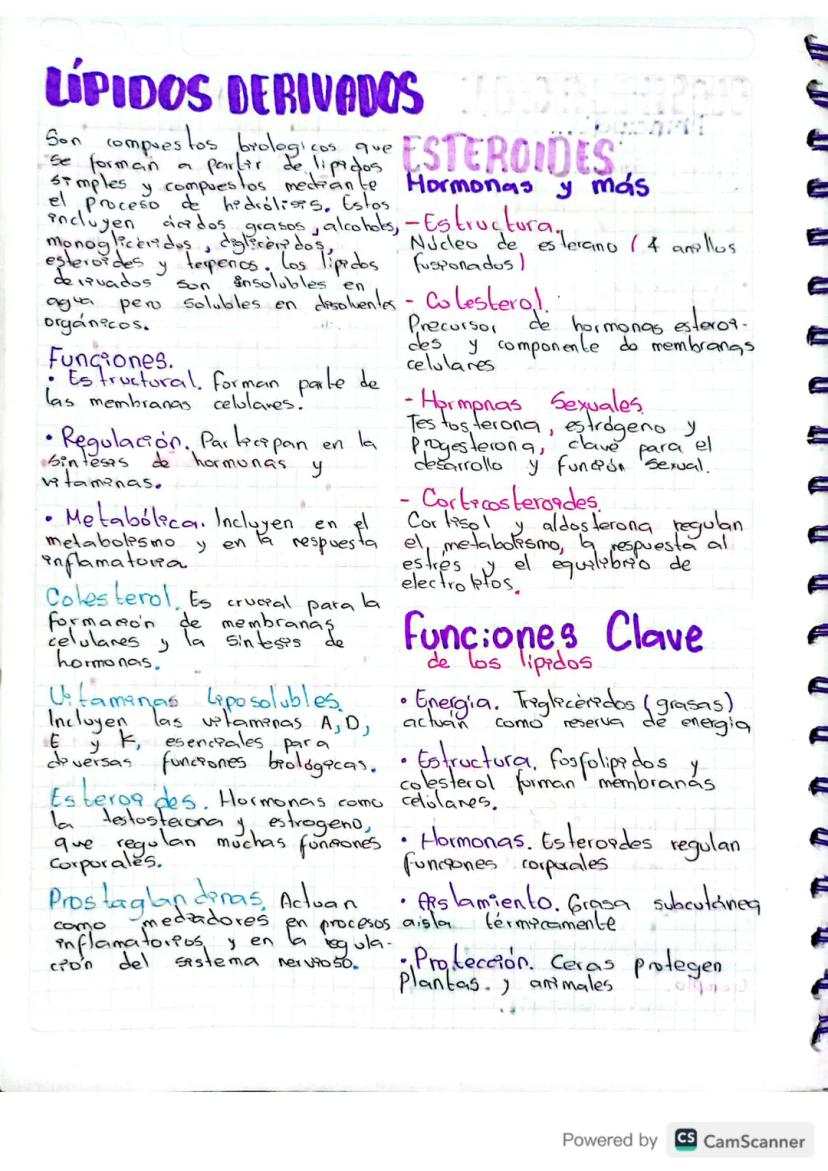 LÍPIDOS DERIVADOS
Son compuestos biologicos que
se forman a partir de lipidos
simples y compuestos mediante
el proceso de hidrólisis. Estos
incluyen ácidos grasos, alcohols,
monoglicéridos, diglicéridos,
esteroides y terpenos. Los lípidos
derivados son insolubles en
agua pero solubles en disolventes
orgánicos.
Funciones.
• Estructural. Forman parte de
las membranas celulares.
• Regulación. Participan en la
síntesis de hormonas y
vitaminas.
• Metabólica. Incluyen en el
metabolismo y en la respuesta
inflamatoria
Colesterol. Es crucial para la
formación de membranas
celulares y la síntesis de
hormonas.
Vitaminas Liposolubles.
Incluyen las vitaminas A, D,
E y K, esenciales para
diversas funciones biológicas.
Esteroides. Hormonas como
la testosterona y estrogeno,
que regulan muchas funciones
corporales.
Prostaglandinas. Actuan
como mediadores en procesos
inflamatorios y en la regula-
ción del sistema nervioso.
ESTEROIDES
Hormonas y más
- Estructura.
Núcleo de esterano (4 anillos
fusionados)
- Colesterol.
Precursor de hormonas esteroi-
des y componente do membranas
celulares
- Hormonas Sexuales.
Testosterona, estrógeno y
Progesterona, clave para el
desarrollo y función sexual.
- Corticosteroides.
Cortisol y aldosterona regulan
el metabolismo, la respuesta al
estrés y el equilibrio de
electrolitos.
Funciones Clave
de los lípidos
• Energía. Triglicéridos (grasas)
actúan como reserva de energía
• Estructura. Fosfolipidos y
colesterol forman membranas
celúlares.
• Hormonas. Esteroides regulan
funciones corporales
• Aislamiento. Grasa subcutánea
aisla térmicamente
• Protección. Ceras protegen
Plantas. y animales
Powered by CS CamScanner